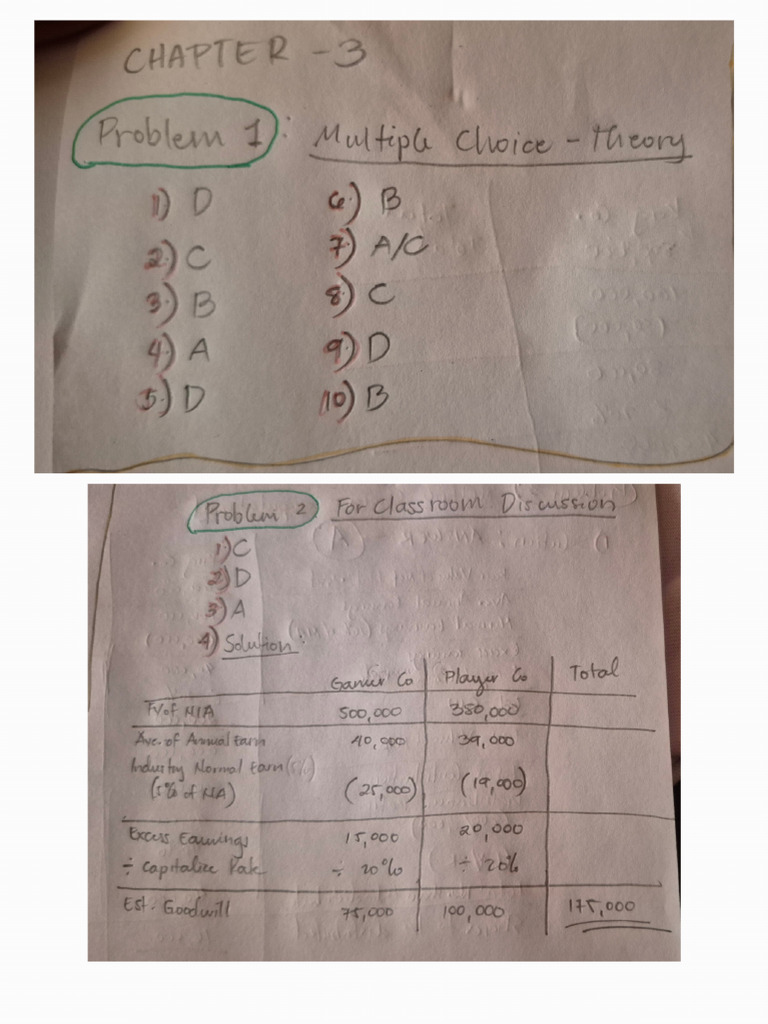 CHAPTER - 3
Problem 1: Multiple Choice - Theory
1) D
2.) C
3.) B
4.) A
5.) D
6.) B
7.) A/C
8.) C
9.) D
10.) B
Problem 2 For Classroom Discussion
1) C
2) D
3) A
4) Solution:
Gamer Co Player Co Total
FV of N/A 500,000 380,000
Ave. of Annual Earn 40,000 39,000
Industry Normal Earn (5%)
(5% of NA) (25,000) (19,000)
Excess Earnings 15,000 20,000
÷ Capitalize Rate ÷ 20% ÷ 20%
Est. Goodwill 75,000 100,000 175,000